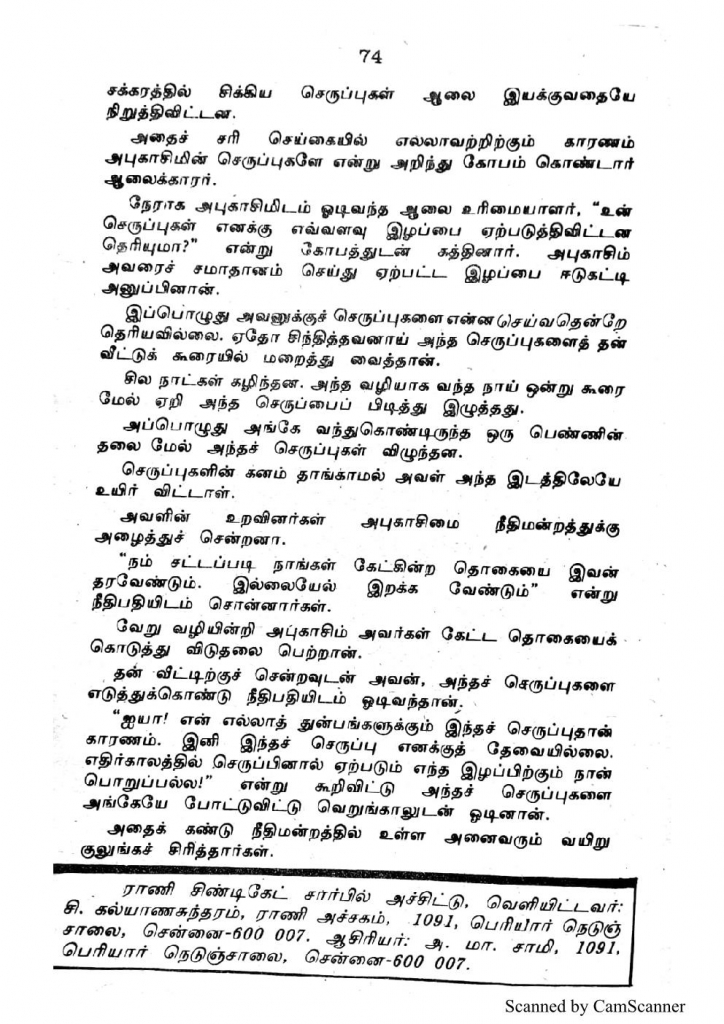 74
சக்கரத்தில் சிக்கிய செருப்புகள் ஆலை இயக்குவதையே
நிறுத்திவிட்டன.
அதைச் சரி செய்கையில் எல்லாவற்றிற்கும் காரணம்
அபுகாசிமின் செருப்புகளே என்று அறிந்து கோபம் கொண்டார்
ஆலைக்காரர்.
நேராக அபுகாசிமிடம் ஓடிவந்த ஆலை உரிமையாளர், “உன்
செருப்புகள் எனக்கு எவ்வளவு இழப்பை ஏற்படுத்திவிட்டன
தெரியுமா?” என்று கோபத்துடன் கத்தினார். அபுகாசிம்
அவரைச் சமாதானம் செய்து ஏற்பட்ட இழப்பை ஈடுகட்டி
அனுப்பினான்.
இப்பொழுது அவனுக்குச் செருப்புகளை என்ன செய்வதென்றே
தெரியவில்லை. ஏதோ சிந்தித்தவனாய் அந்த செருப்புகளைத் தன்
வீட்டுக் கூரையில் மறைத்து வைத்தான்.
சில நாட்கள் கழிந்தன. அந்த வழியாக வந்த நாய் ஒன்று கூரை
மேல் ஏறி அந்த செருப்பைப் பிடித்து இழுத்தது.
அப்பொழுது அங்கே வந்துகொண்டிருந்த ஒரு பெண்ணின்
தலை மேல் அந்தச் செருப்புகள் விழுந்தன.
செருப்புகளின் கனம் தாங்காமல் அவள் அந்த இடத்திலேயே
உயிர் விட்டாள்.
அவளின் உறவினர்கள் அபுகாசிமை நீதிமன்றத்துக்கு
அழைத்துச் சென்றனா.
“நம் சட்டப்படி நாங்கள் கேட்கின்ற தொகையை இவன்
தரவேண்டும். இல்லையேல் இறக்க வேண்டும்” என்று
நீதிபதியிடம் சொன்னார்கள்.
வேறு வழியின்றி அபுகாசிம் அவர்கள் கேட்ட தொகையைக்
கொடுத்து விடுதலை பெற்றான்.
தன் வீட்டிற்குச் சென்றவுடன் அவன், அந்தச் செருப்புகளை
எடுத்துக்கொண்டு நீதிபதியிடம் ஓடிவந்தான்.
“ஐயா! என் எல்லாத் துன்பங்களுக்கும் இந்தச் செருப்புதான்
காரணம். இனி இந்தச் செருப்பு எனக்குத் தேவையில்லை.
எதிர்காலத்தில் செருப்பினால் ஏற்படும் எந்த இழப்பிற்கும் நான்
பொறுப்பல்ல!” என்று கூறிவிட்டு அந்தச் செருப்புகளை
அங்கேயே போட்டுவிட்டு வெறுங்காலுடன் ஓடினான்.
அதைக் கண்டு நீதிமன்றத்தில் உள்ள அனைவரும் வயிறு
குலுங்கச் சிரித்தார்கள்.
ராணி சிண்டிகேட் சார்பில் அச்சிட்டு, வெளியிட்டவர்:
சி. கல்யாணசுந்தரம், ராணி அச்சகம், 1091, பெரியார் நெடுஞ்
சாலை, சென்னை-600 007. ஆசிரியர்: அ. மா. சாமி, 1091,
பெரியார் நெடுஞ்சாலை, சென்னை-600 007.
Scanned by CamScanner